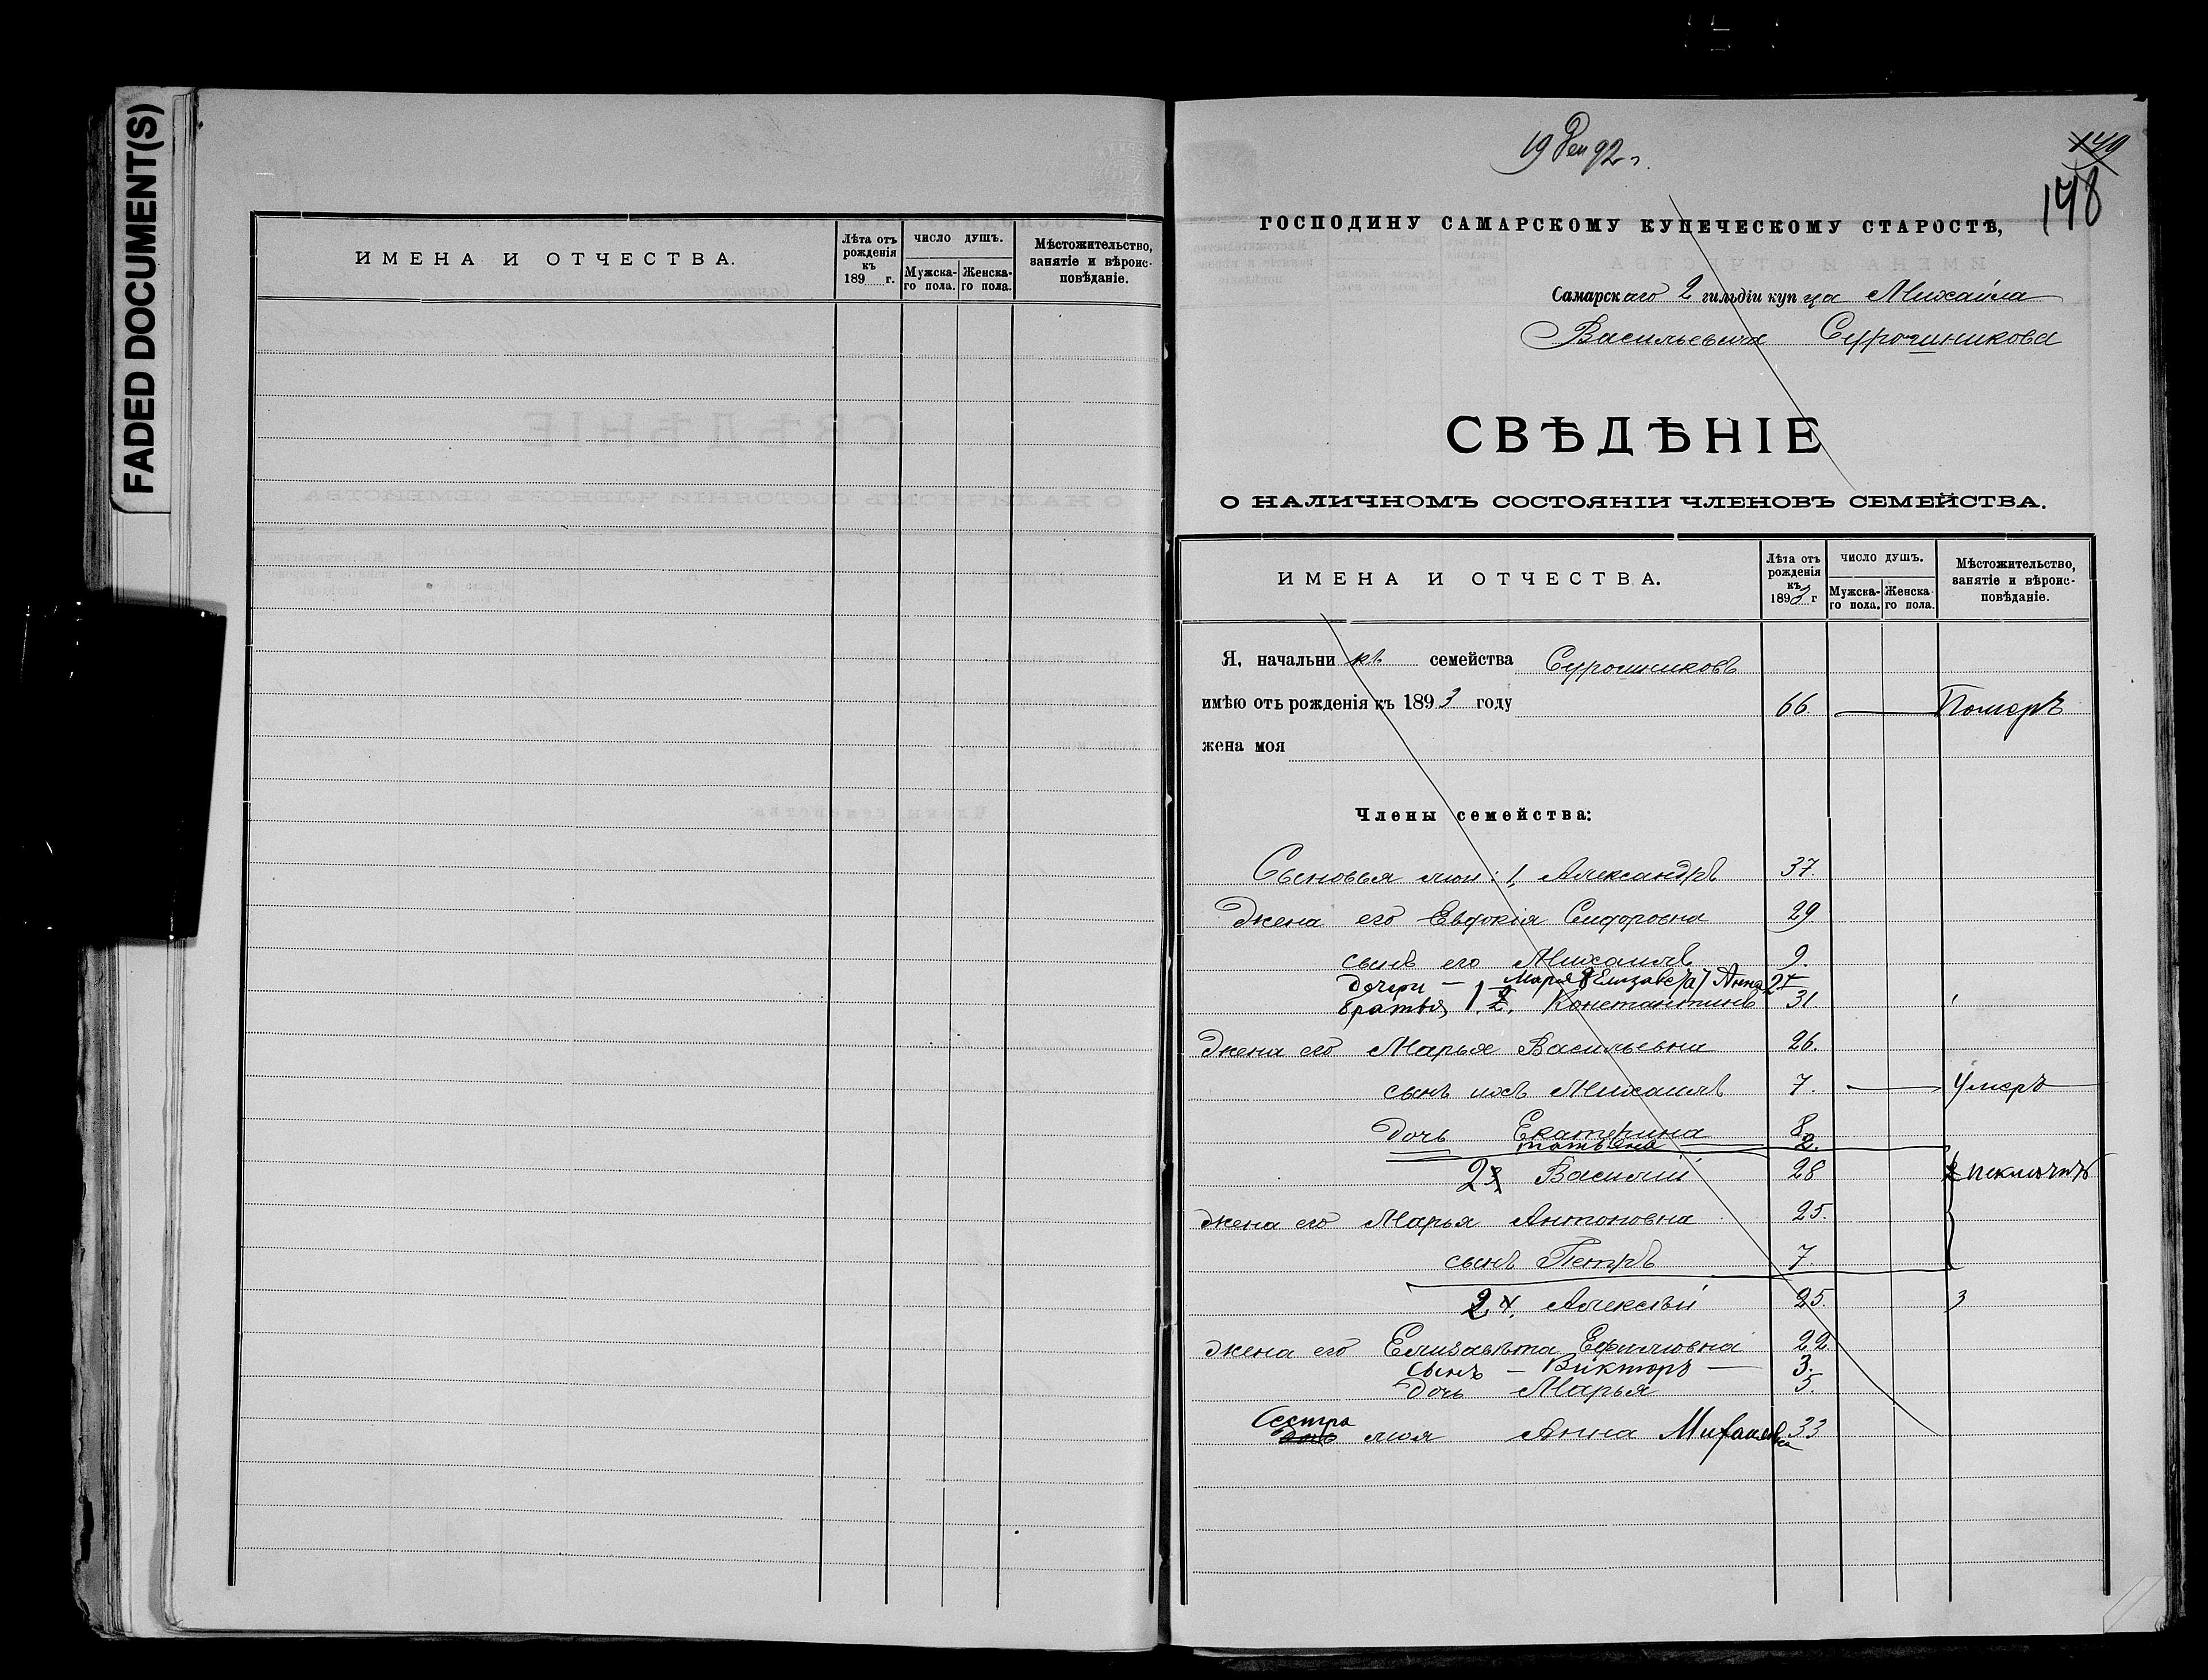 FADED DOCUMENT(S)
ИМЕНА И ОТЧЕСТВА.
Лѣта отъ рожденія къ 189 г.
ЧИСЛО ДУШЪ.
Мужска-го пола.
Женска-го пола.
Мѣстожительство, занятіе и вѣроис-повѣданіе.
19 Дек 92 г.
149
148
ГОСПОДИНУ САМАРСКОМУ КУПЕЧЕСКОМУ СТАРОСТѢ,
Самарскаго 2 гильдіи купца Михаила
Васильевича Сурошникова
СВѢДѢНІЕ
О НАЛИЧНОМЪ СОСТОЯНІИ ЧЛЕНОВЪ СЕМЕЙСТВА.
ИМЕНА И ОТЧЕСТВА.
Лѣта отъ рожденія къ 1893 г
ЧИСЛО ДУШЪ.
Мужска-го пола.
Женска-го пола.
Мѣстожительство, занятіе и вѣроис-повѣданіе.
Я, начальникъ семейства Сурошниковъ
имѣю отъ рожденія къ 1893 году 66 — Померъ
жена моя
Члены семейства:
Сыновья мои: 1, Александръ 37.
Жена его Евдокія Сидоровна 29
сынъ его Михаилъ 9.
дочери — Марья 8 Елизавета 7 Анна 2
братья, 1. 2. Константинъ 31
Жена его Марья Васильевна 26.
сынъ ихъ Михаилъ 7. — Умеръ
Дочь Екатерина 8
Татьяна 2.
2 3 Василій 28 исключить
жена его Марья Антоновна 25.
сынъ Петръ 7.
2, 4. Алексѣй 25. 3
жена его Елизавѣта Ефимовна 22
сынъ — Викторъ — 3.
дочь Марья 5.
Сестра
дочь моя Анна Михайловна 33